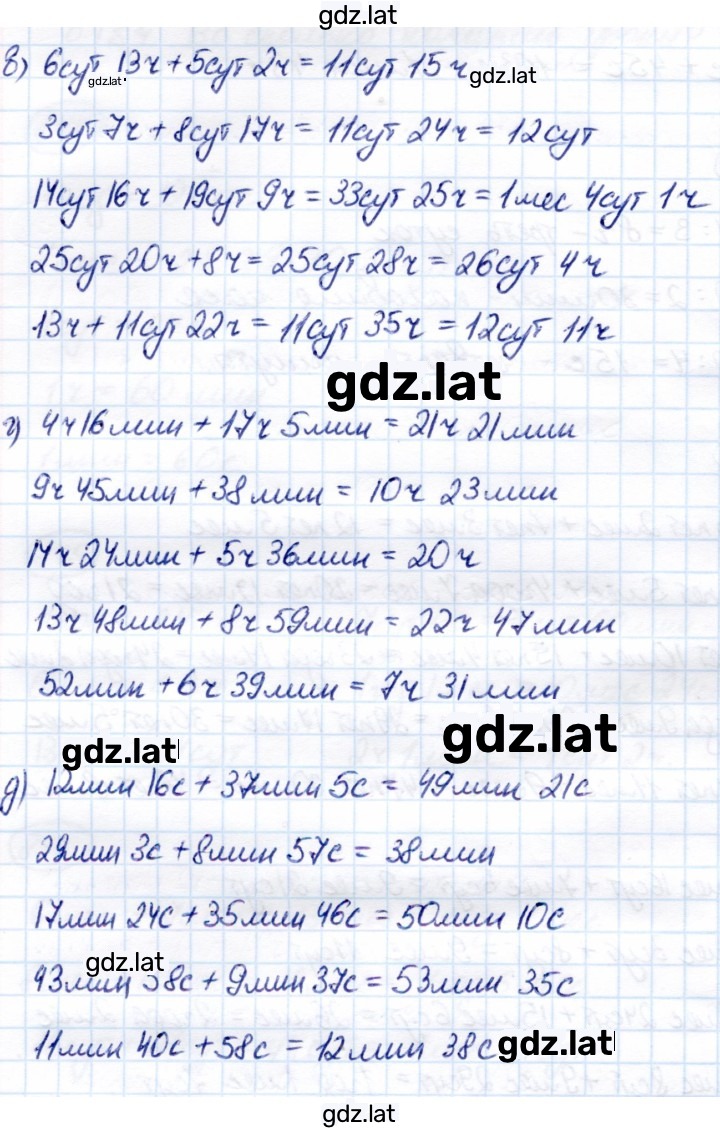 gdz.lat
в) 6сут 13ч + 5сут 2ч = 11сут 15ч
gdz.lat
gdz.lat
3сут 7ч + 8сут 17ч = 11сут 24ч = 12сут
14сут 16ч + 19сут 9ч = 33сут 25ч = 1мес 4сут 1ч
25сут 20ч + 8ч = 25сут 28ч = 26сут 4ч
13ч + 11сут 22ч = 11сут 35ч = 12сут 11ч
gdz.lat
г) 4ч 16мин + 17ч 5мин = 21ч 21мин
9ч 45мин + 38мин = 10ч 23мин
14ч 24мин + 5ч 36мин = 20ч
13ч 48мин + 8ч 59мин = 22ч 47мин
52мин + 6ч 39мин = 7ч 31мин
gdz.lat
gdz.lat
д) 12мин 16с + 37мин 5с = 49мин 21с
29мин 3с + 8мин 57с = 38мин
17мин 24с + 35мин 46с = 50мин 10с
gdz.lat
43мин 58с + 9мин 37с = 53мин 35с
11мин 40с + 58с = 12мин 38с
gdz.lat
gdz.lat